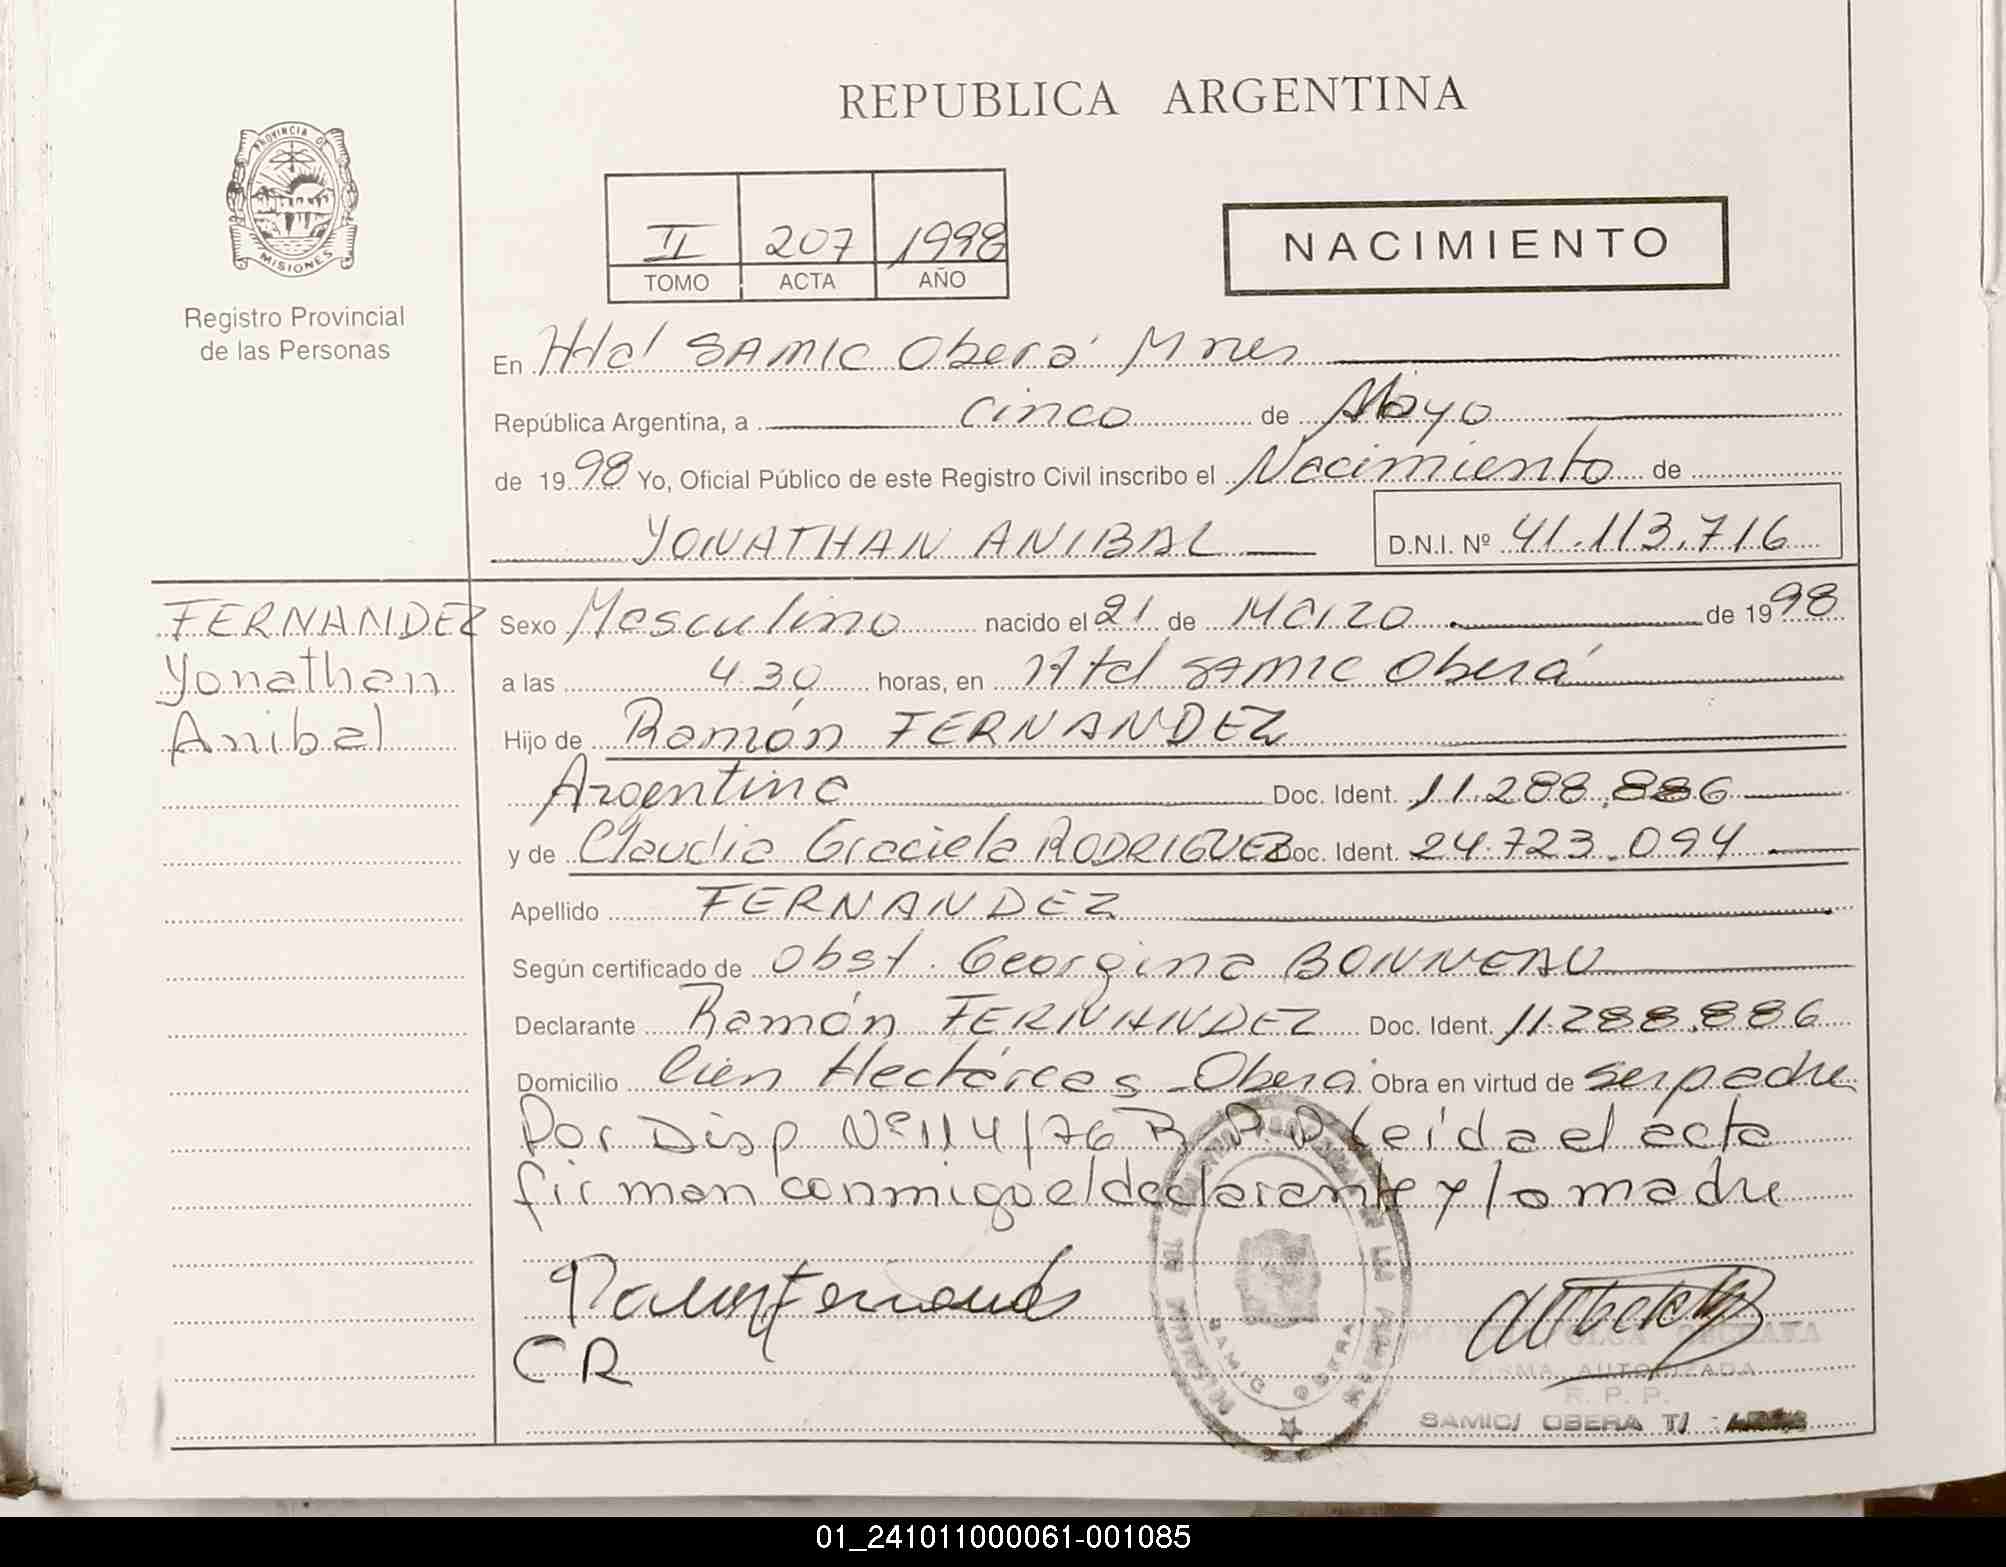 PROVINCIA DE
MISIONES
Registro Provincial
de las Personas
REPUBLICA ARGENTINA
II 207 1998
TOMO ACTA AÑO
NACIMIENTO
En Htal SAMIC Oberá Mnes
República Argentina, a cinco de Mayo
de 1998 Yo, Oficial Público de este Registro Civil inscribo el Nacimiento de
YONATHAN ANIBAL D.N.I. Nº 41.113.716
FERNANDEZ
Yonathan
Anibal
Sexo Masculino nacido el 21 de Marzo de 1998
a las 4 30 horas, en Htal SAMIC Oberá
Hijo de Ramón FERNANDEZ
Argentina Doc. Ident. 11.288.886
y de Claudia Graciela RODRIGUEZ Doc. Ident. 24.723.094
Apellido FERNANDEZ
Según certificado de Obst. Georgina BONNEAU
Declarante Ramón FERNANDEZ Doc. Ident. 11.288.886
Domicilio Cien Hectáreas - Oberá Obra en virtud de ser padre
Por Disp Nº 114/76 R.P.P Leída el acta
firman conmigo el declarante y la madre
CR
SAMIC OBERA
FIRMA AUTORIZADA
R. P. P.
SAMIC/ OBERA
01_241011000061-001085